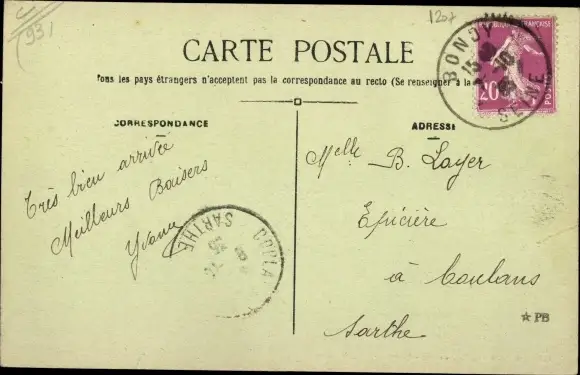 C
(93)
1207
CARTE POSTALE
Tous les pays étrangers n'acceptent pas la correspondance au recto (Se renseigner à la
CORRESPONDANCE
Très bien arrivée
Meilleurs Baisers
Yvonne
ADRESSE
Melle B. Layer
Epicière
à Coulans
Sarthe
BONDY
15
10
SEINE
FRANÇAISE
20
POSTES
COULA
SARTHE
★ PB